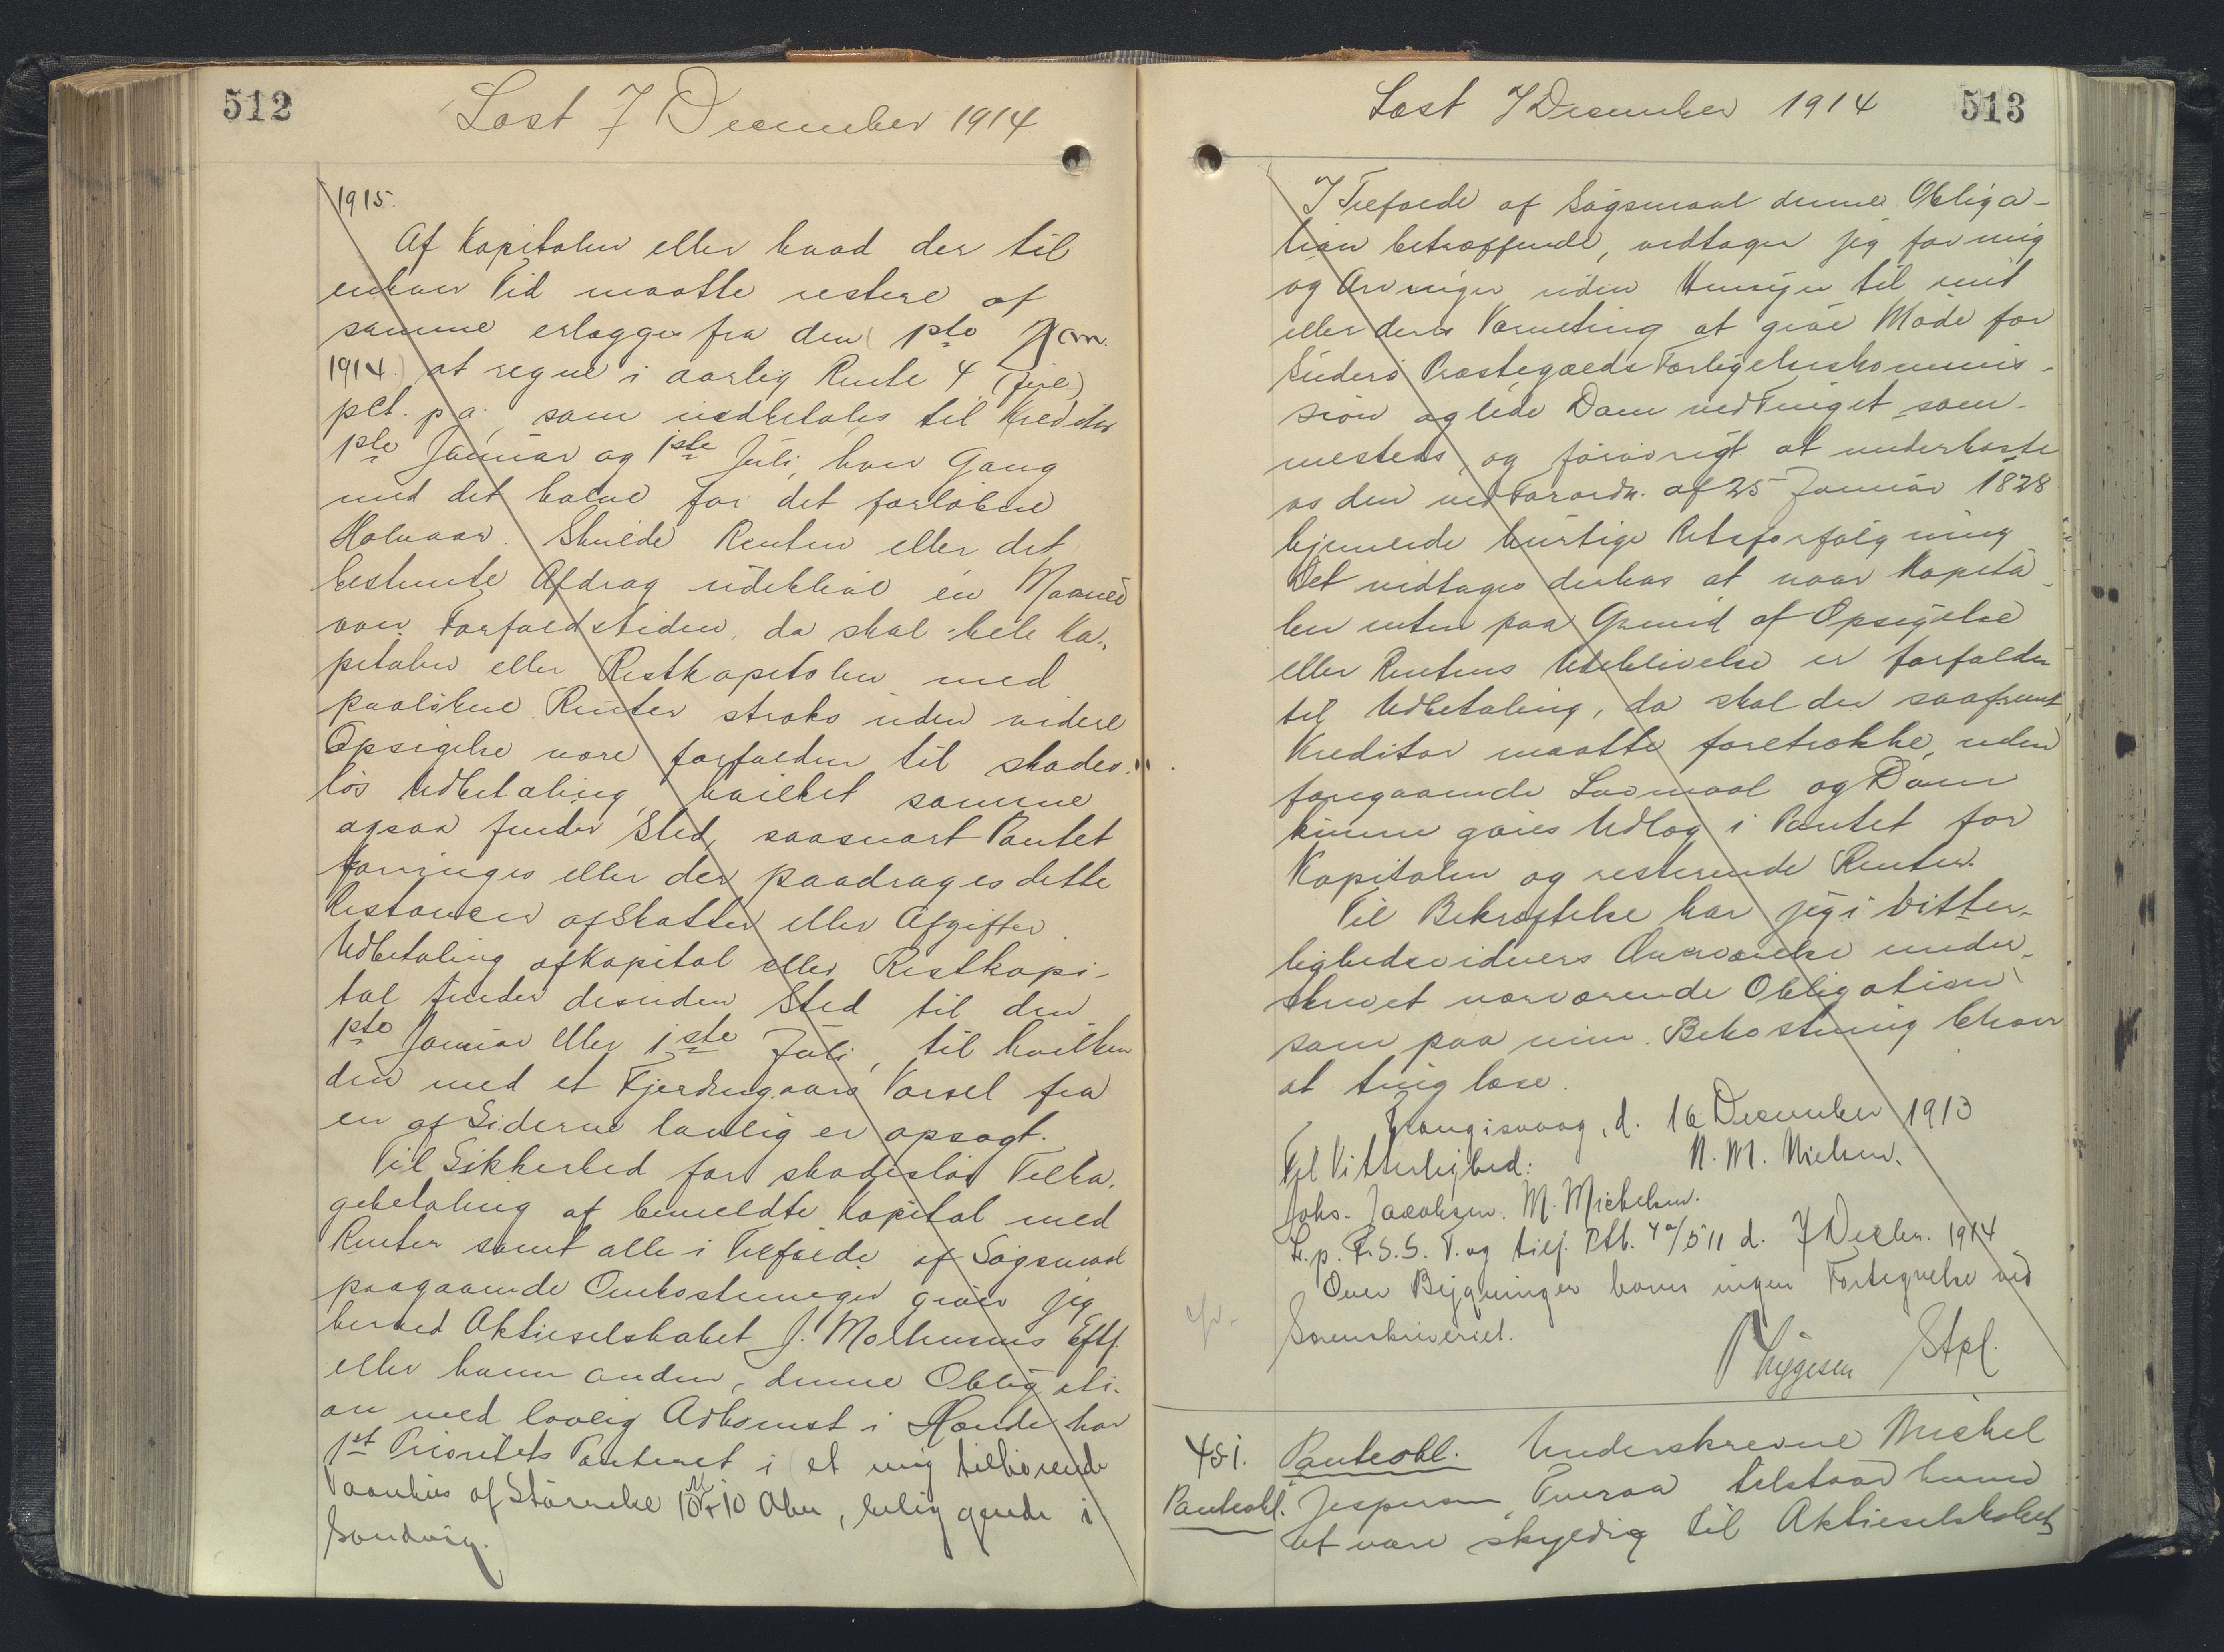 512
Læst 7 December 1914
1915.
Af Kapitalen eller hvad der til
enhver Tid maatte restere af
samme erlægges fra den (1ste Jan.
1914) at regne i aarlig Rente 4 (fire)
pct. p.a., som indbetales til Kreditor
1ste Januar og 1ste Juli, hver Gang
med det halve for det forløbne
Halvaar. Skulde Renten eller det
bestemte Afdrag udeblive en Maaned
over Forfaldstiden, da skal hele Ka-
pitalen eller Restkapitalen med
paaløbne Renter straks uden videre
Opsigelse være forfalden til skades-
løs Udbetaling, hvilket samme
ogsaa finder Sted, saasnart Pantet
forringes eller der paadrages dette
Restancer af Skatter eller Afgifter.
Udbetaling af Kapital eller Restkapi-
tal finder desuden Sted til den
1ste Januar eller 1ste Juli, til hvilken
den med et Fjerdingaars Varsel fra
en af Siderne lovlig er opsagt.
Til Sikkerhed for skadesløs Tilba-
gebetaling af bemeldte Kapital med
Renter samt alle i Tilfælde af Søgsmaal
paagaaende Omkostninger giver jeg
herved Aktieselskabet J. Mortensens Eftf.
eller hvem anden, denne Obligati-
on med lovlig Adkomst i Hænde har
1st Prioritets Panteret i et mig tilhørende
Vaanhus af Størrelse 10 x 10 Alen, beliggende i
Sandvig.
Læst 7 December 1914
513
I Tilfælde af Søgsmaal denne Obliga-
tion betræffende, vedtager jeg for mig
og Arvinger uden Hensyn til mit
eller deres Værneting at give Møde for
Suderø Præstegælds Forligelseskommis-
sion og lide Dom ved Tinget sam-
mesteds, og forøvrigt at underkaste
os den ved Forordn. af 25 Januar 1828
hjemlede hurtige Retsforfølgning
Det vedtages derhos at naar Kapita-
len enten paa Grund af Opsigelse
eller Rentens Udeblivelse er forfalden
til Udbetaling, da skal der saafremt
Kreditor maatte foretrække, uden
foregaaende Lovmaal og Dom
kunne gøres Udlæg i Pantet for
Kapitalen og resterende Renter.
Til Bekræftelse har jeg i Vitter-
lighedsvidners Overværelse under-
skrevet nærværende Obligation
som paa min Bekostning bliver
at tinglæse.
Trangisvaag, d. 16 December 1913
Til Vitterlighed: N. M. Nielsen.
Johs. Jacobsen. M. Michelsen.
L. p. F. S. S. T. og tilf. Ptb. 4a/511 d. 7 Decbr. 1914
Over Bygninger haves ingen Fortegnelse ved
Sorenskriveriet.
Thygesen Stpl.
451.
Panteobl.
Panteobl. Underskrevne Michel
Jespersen, Tveraa tilstaar herved
at være skyldig til Aktieselskabet